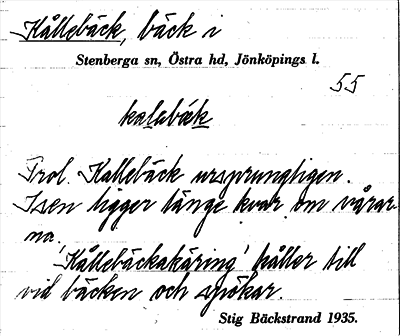 Kållebäck, bäck i
Stenberga sn, Östra hd, Jönköpings l.
55
kalabäk
Trol. Kallebäck ursprungligen.
Isen ligger länge kvar om vårar-
na.
'Kållebäckakäring' håller till
vid bäcken och spökar.
Stig Bäckstrand 1935.